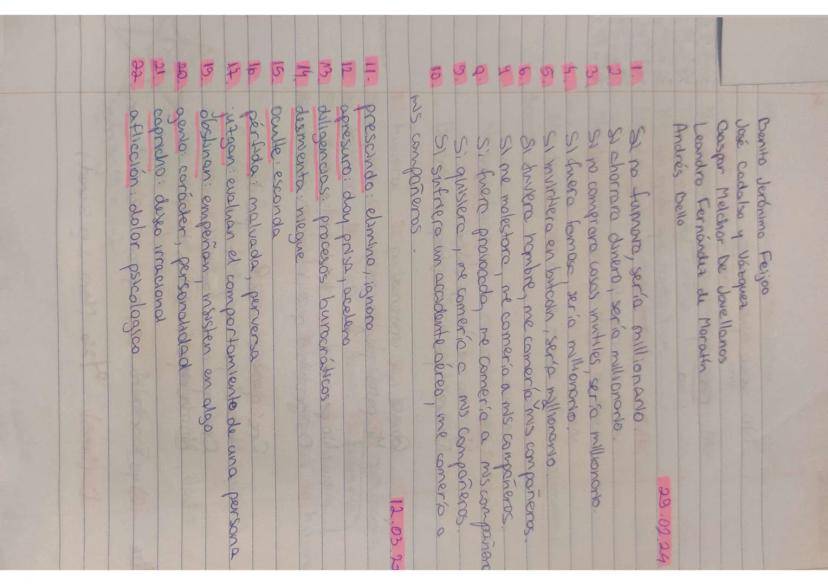 Benito Jerónimo Feijoo
José Cadalso y Vázquez
Gaspar Melchor De Jovellanos
Leandro Fernández de Moratín
Andrés Bello
29.02.24
1. Si no fumara, sería millionario.
2. Si ahorrara dinero, sería millionario.
3. Si no comprara cosas inútiles, sería millionario.
4. Si fuera famosa, sería millionario.
5. Si invirtiera en bitcoin, sería millionario.
6. Si tuviera hambre, me comería a mis compañeros.
7. Si me molestara, me comería a mis compañeros.
Si fuera provocada, me comería a mis compañeros
9. Si quisiera, me comería a mis compañeros.
10. Si sufriera un accidente aéreo, me comería a
mis compañeros.
12.03.2
11. prescindo: elimina, ignora
12. apresuro: doy prisa, acelero
13. diligencias: procesos burocráticos
14. desmienta: niegue
15. oculte: esconda
16. pérfida: malvada, perversa
17. juzgan: evaluan el comportamiento de una persona
19. obstinan: empeñan, insisten en algo
20. genio: carácter, personalidad
21. capricho: deseo irracional
22. aflicción: dolor psicológico